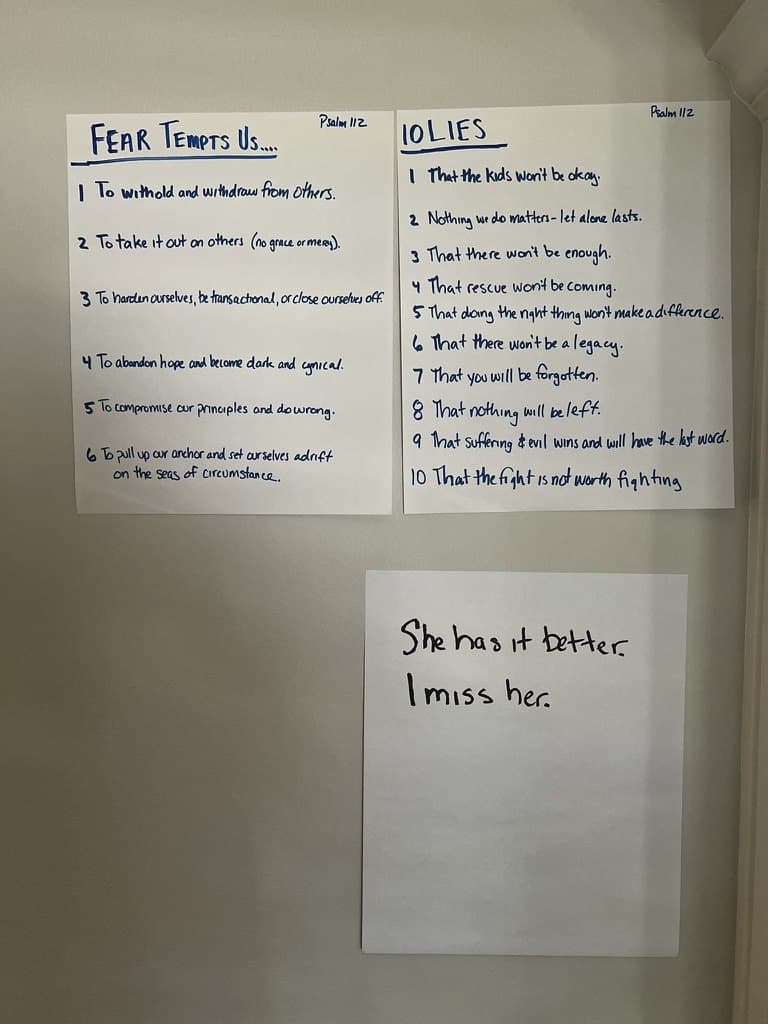 Psalm 112
FEAR TEMPTS US....
1 To withold and withdraw from others.
2 To take it out on others (no grace or mercy).
3 To harden ourselves, be transactional, or close ourselves off.
4 To abandon hope and become dark and cynical.
5 To compromise our principles and do wrong.
6 To pull up our anchor and set ourselves adrift
on the seas of circumstance.
Psalm 112
10 LIES
1 That the kids won't be okay.
2 Nothing we do matters - let alone lasts.
3 That there won't be enough.
4 That rescue won't be coming.
5 That doing the right thing won't make a difference.
6 That there won't be a legacy.
7 That you will be forgotten.
8 That nothing will be left.
9 That suffering & evil wins and will have the last word.
10 That the fight is not worth fighting
She has it better.
I miss her.